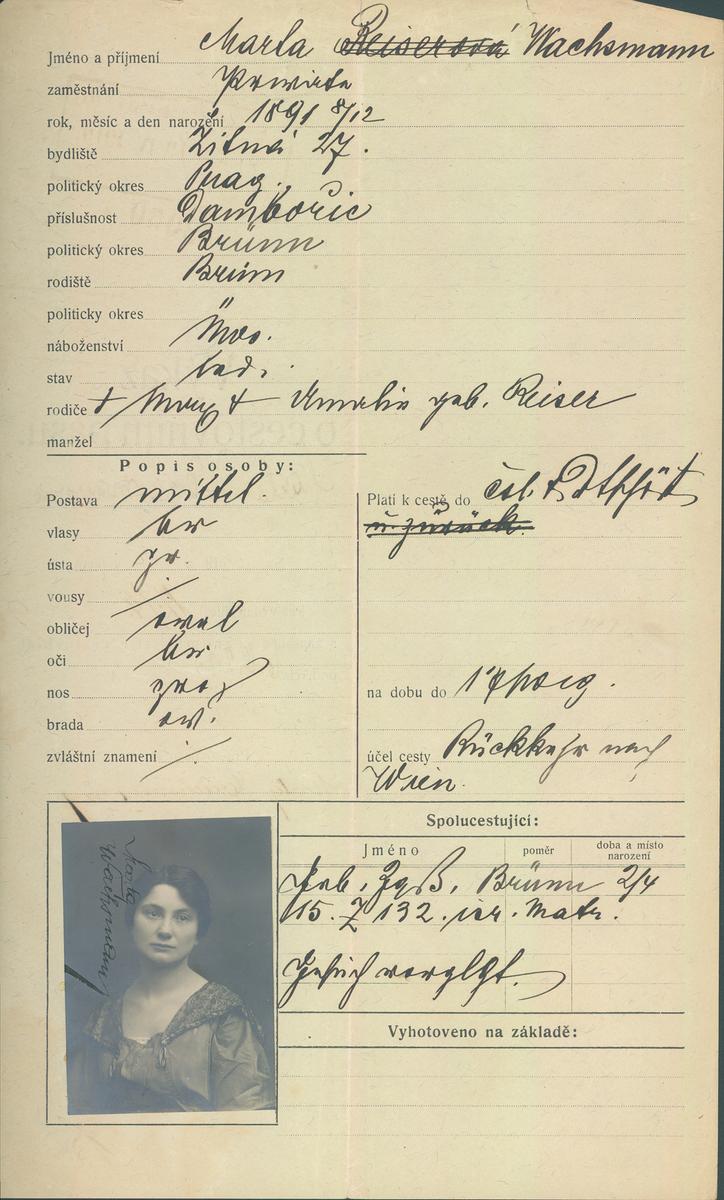 Jméno a příjmení Marta Reiserová Wachsmann
zaměstnání Private
rok, měsíc a den narození 1891 8/12
bydliště Žitná 27.
politický okres Prag.
příslušnost Dambořic
politický okres Brünn
rodiště Brünn
politicky okres "
náboženství
stav led.
rodiče † Max † Amalie geb. Reiser
manžel
Popis osoby:
Postava mittel.
vlasy br
ústa pr.
vousy /
obličej oval
oči br
nos prop
brada ov.
zvláštní znamení ./.
Platí k cestě do čsl. + Dtschöst
u. zurück.
na dobu do 1
účel cesty Rückkehr nach
Wien.
Spolucestující:
Jméno poměr doba a místo narození
Geb. Zgß. Brünn 2/4
15. Z 132. isr. Matr.
Gesuch
Vyhotoveno na základě:
Marta
Wachsmann